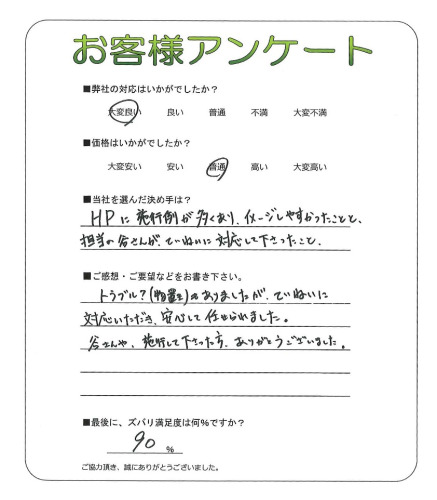 お客様アンケート
■弊社の対応はいかがでしたか？
大変良い 良い 普通 不満 大変不満
■価格はいかがでしたか？
大変安い 安い 普通 高い 大変高い
■当社を選んだ決め手は？
HPに施行例が多くあり、イメージしやすかったことと、
担当の谷さんが、ていねいに対応して下さったこと、
■ご感想・ご要望などをお書き下さい。
トラブル？(物置き)もありましたが、ていねいに
対応いただき、安心して任せられました。
谷さんや、施行して下さった方、ありがとうございました。
■最後に、ズバリ満足度は何％ですか？
90 %
ご協力頂き、誠にありがとうございました。